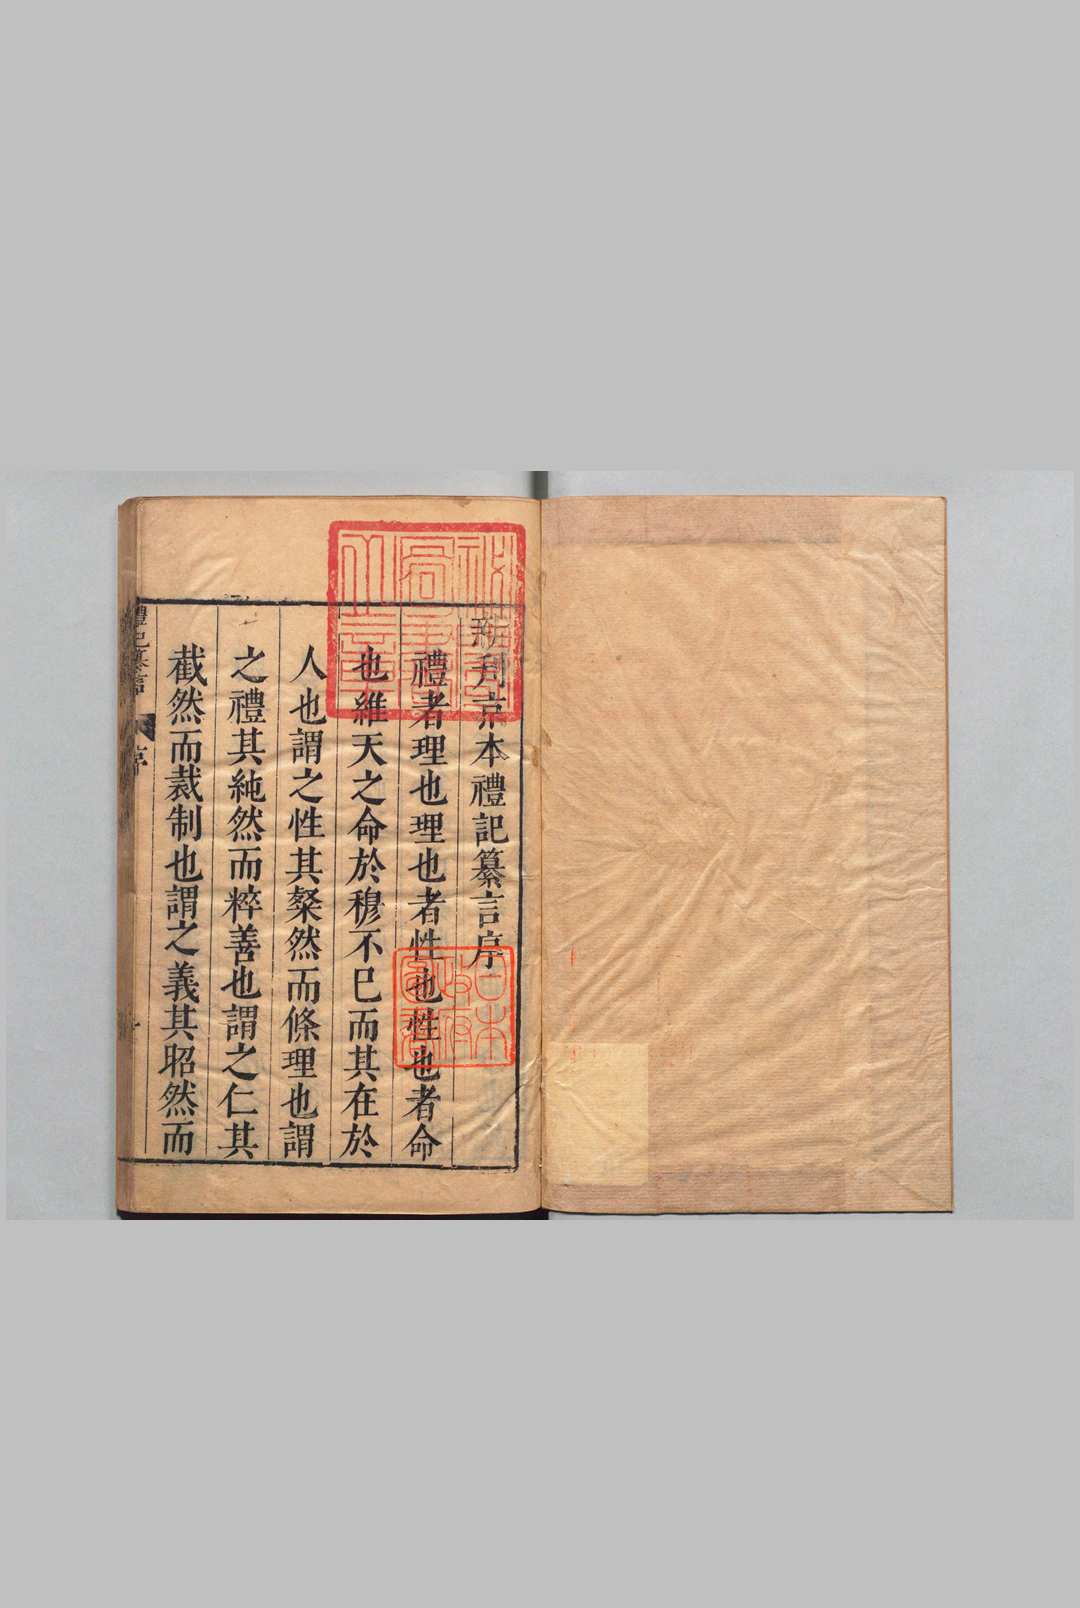 新刋京本禮記纂言序
禮者理也理也者性也性也者命
也維天之命於穆不已而其在於
人也謂之性其粲然而條理也謂
之禮其純然而粹善也謂之仁其
截然而裁制也謂之義其昭然而
禮記纂言
序
日本政府圖書